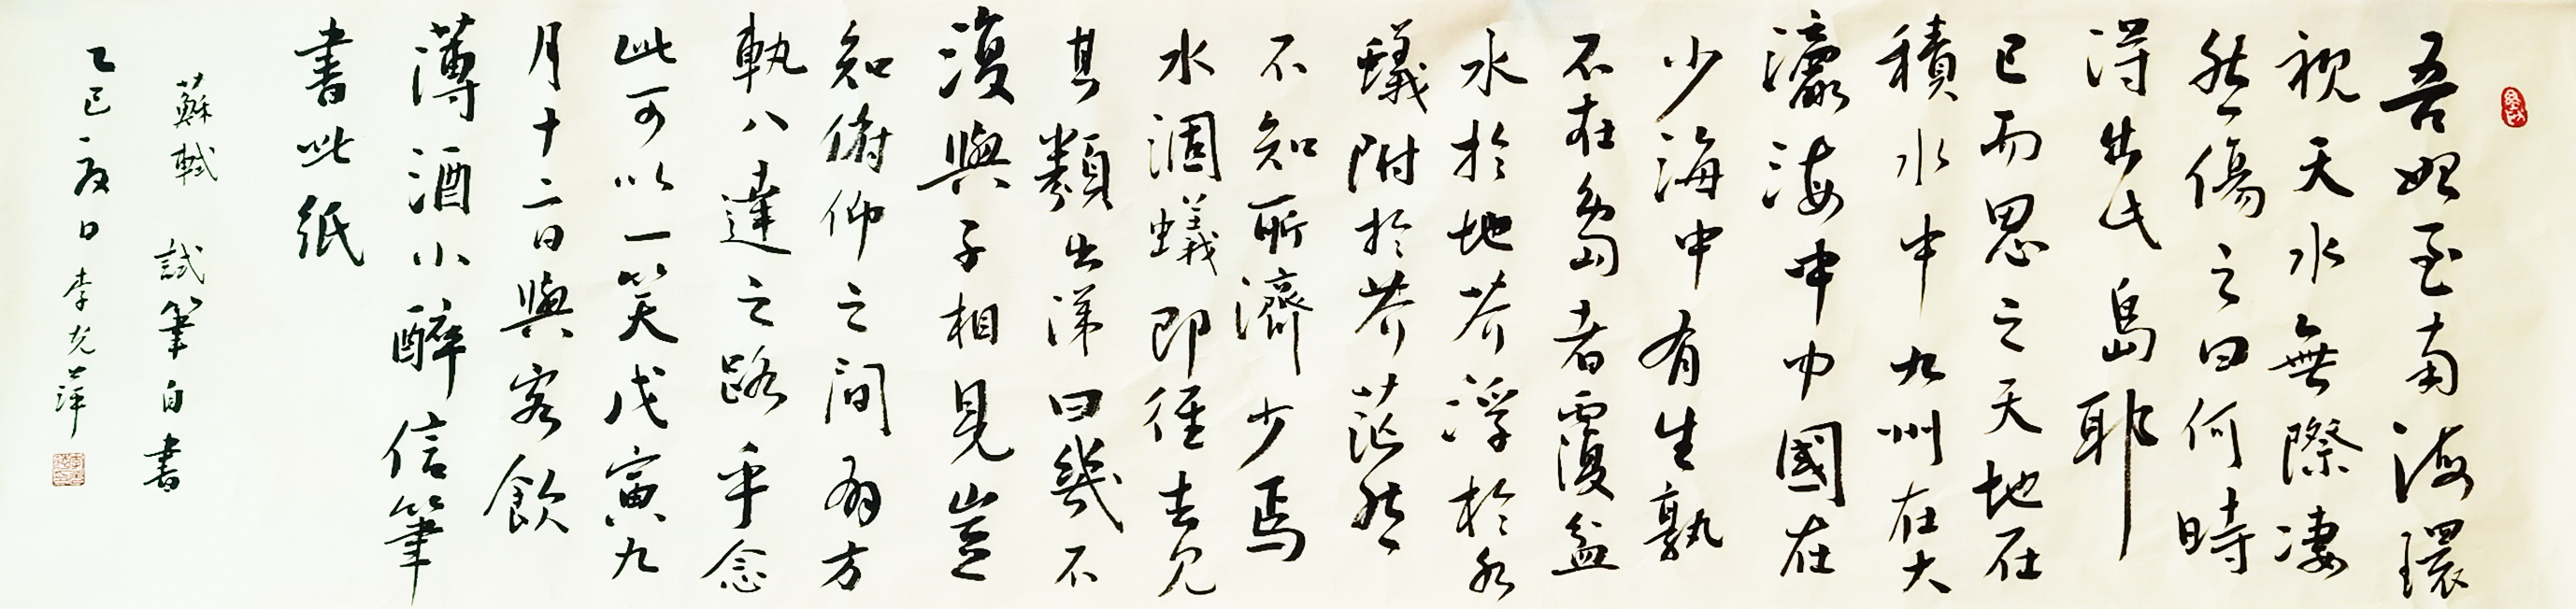 吾始至南海環
視天水無際凄
然傷之曰何時
得出此島耶
已而思之天地在
積水中九州在大
瀛海中中國在
少海中有生孰
不在島者覆盆
水於地芥浮於水
蟻附於芥茫然
不知所濟少焉
水涸蟻即徑去見
其類出涕曰幾不
復與子相見豈
知俯仰之間有方
軌八達之路乎念
此可以一笑戊寅九
月十二日與客飲
薄酒小醉信筆
書此紙
蘇軾 試筆自書
乙巳夏日李光萍